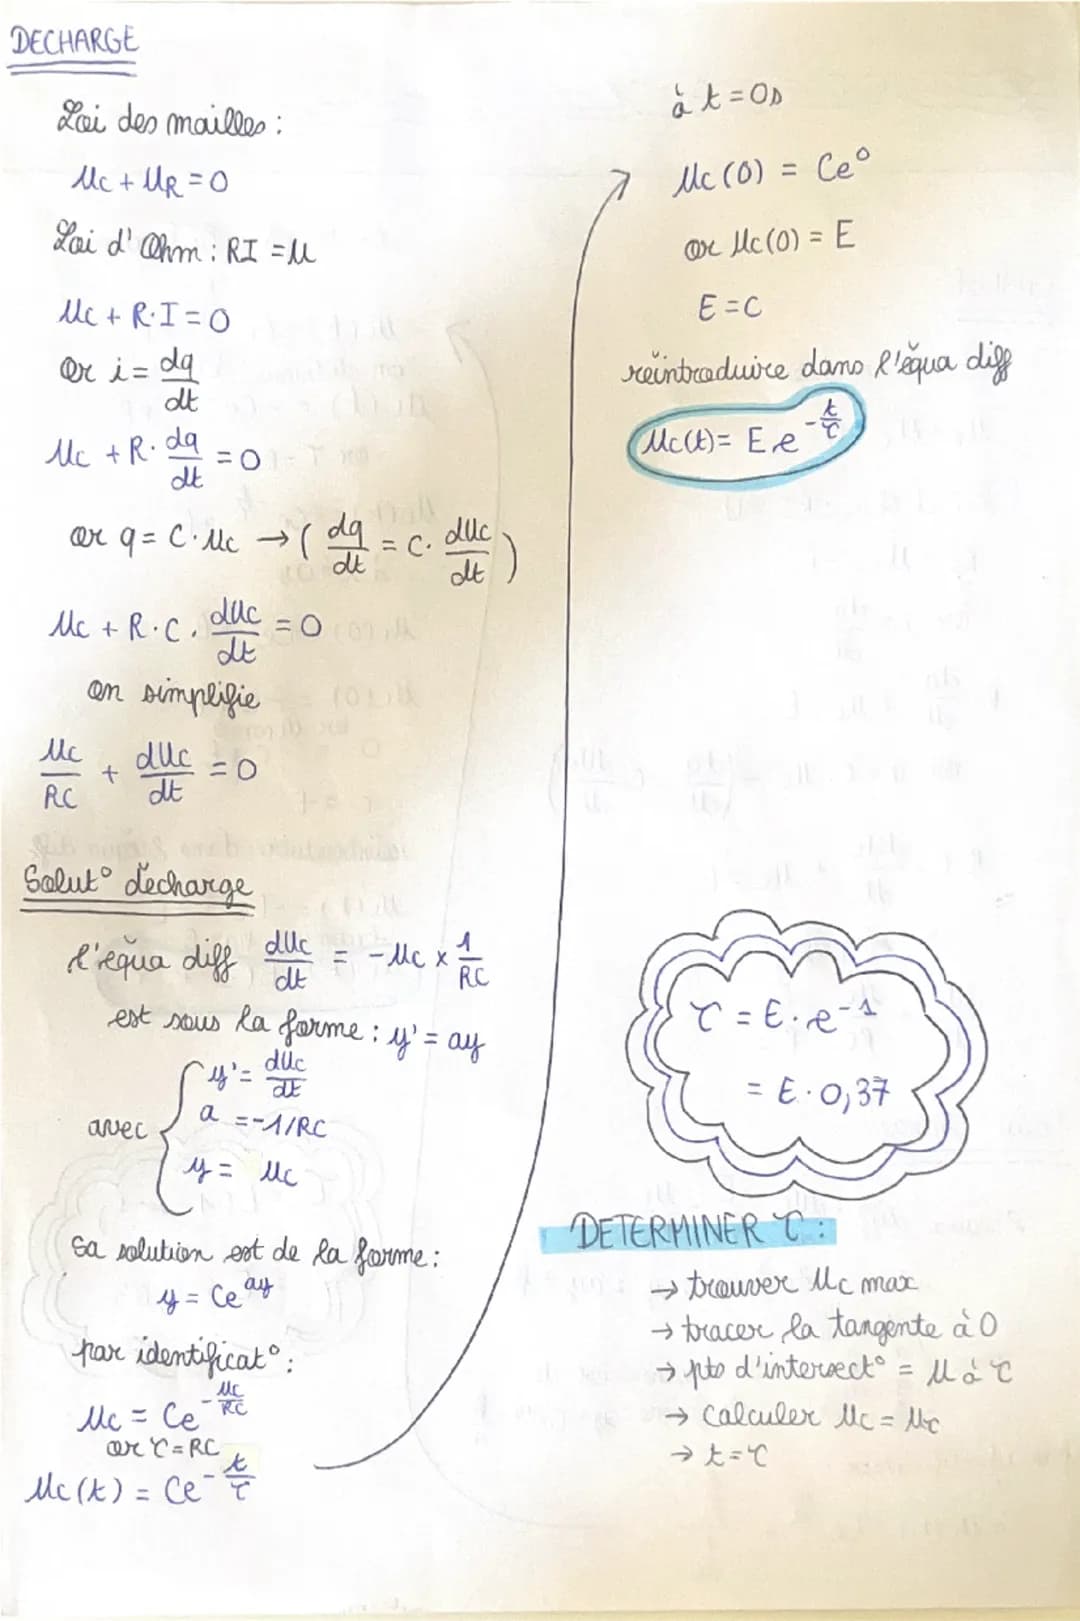 DECHARGE
Loi des mailles :
Uc + UR = 0
Loi d'Ohm : RI = U
Uc + R·I = 0
Or i = dq/dt
Uc + R· dq/dt = 0
or q = C·Uc → ( dq/dt = C· dUc/dt )
Uc + R·C· dUc/dt = 0
on simplifie
Uc/RC + dUc/dt = 0
Solut° décharge
l'équa diff dUc/dt = -Uc x 1/RC
est sous la forme : y' = ay
avec { y' = dUc/dt
a = -1/RC
y = Uc
Sa solution est de la forme :
y = Ce^ay
par identificat° :
Uc = Ce^-Uc/RC
or τ = RC
Uc(t) = Ce^-t/τ
à t = 0s
Uc(0) = Ce^0
or Uc(0) = E
E = C
réintroduire dans l'équa diff
Uc(t) = E.e^-t/τ
τ = E.e^-1
= E·0,37
DETERMINER τ :
→ trouver Uc max
→ tracer la tangente à 0
→ pts d'intersect° = U à τ
→ Calculer Uc = Uτ
→ t = τ